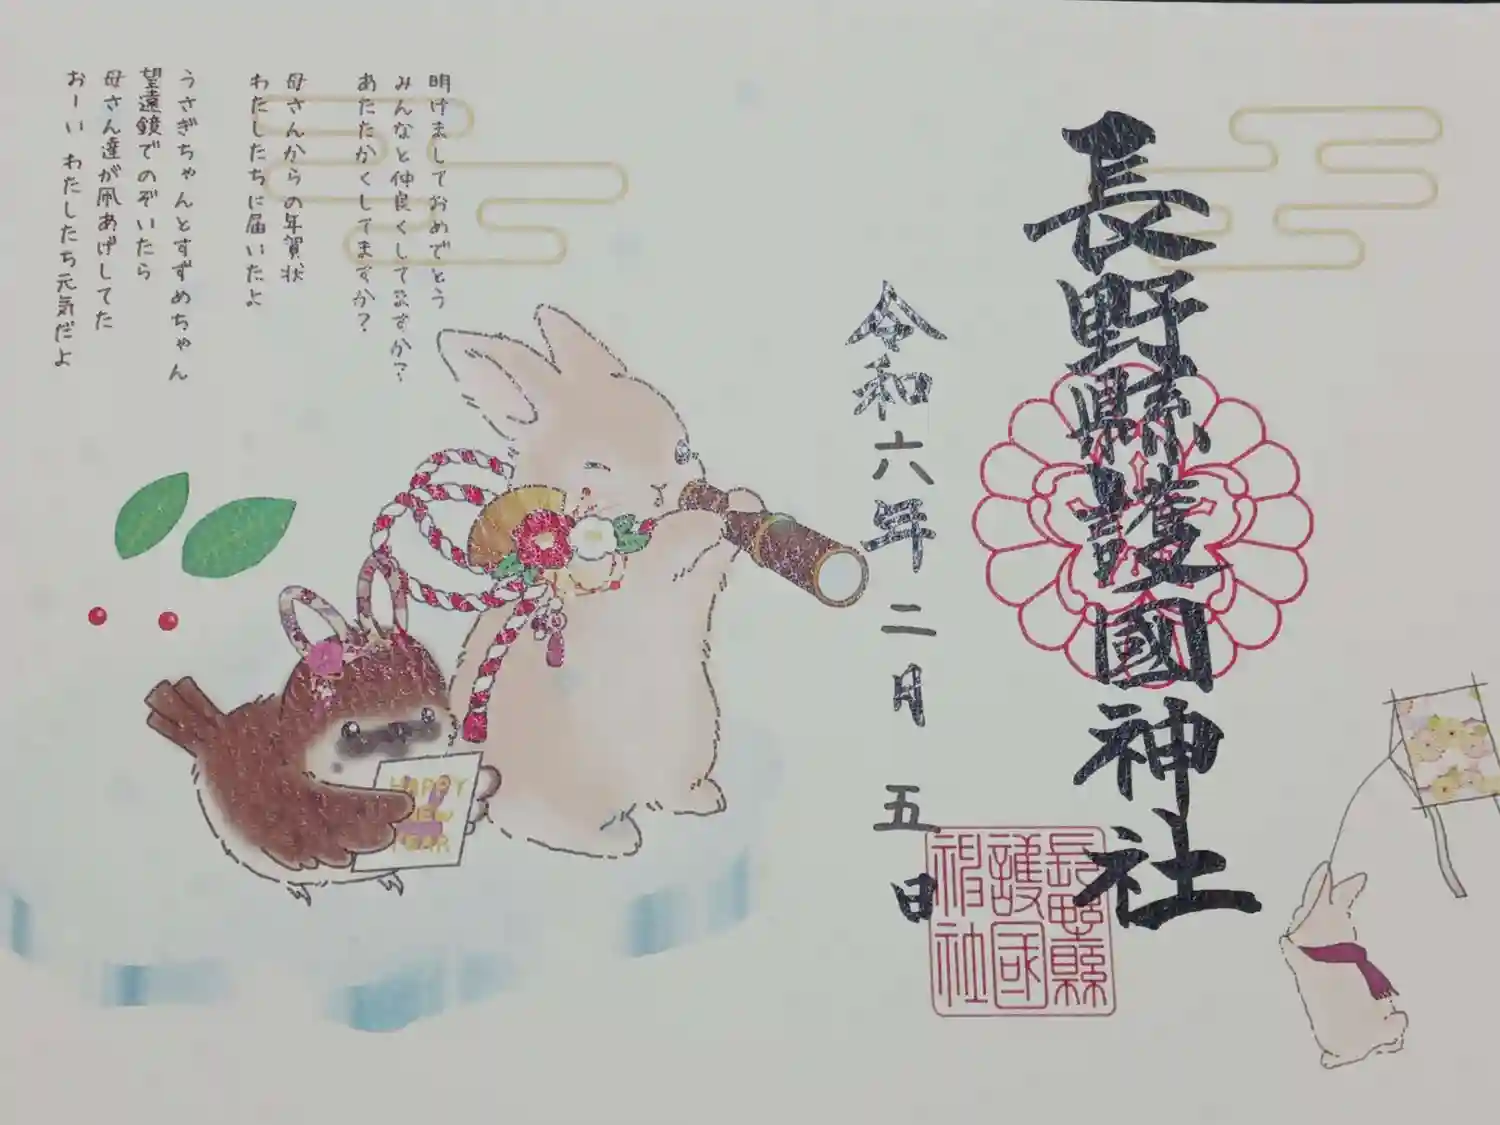 長野縣護國神社
令和六年二月五日
長野縣
護國
神社
明けましておめでとう
みんなと仲良くしてますか?
あたたかくしてますか?
母さんからの年賀状
わたしたちに届いたよ
うさぎちゃんとすずめちゃん
望遠鏡でのぞいたら
母さん達が凧あげしてた
おーい わたしたち元気だよ
HAPPY
NEW
YEAR